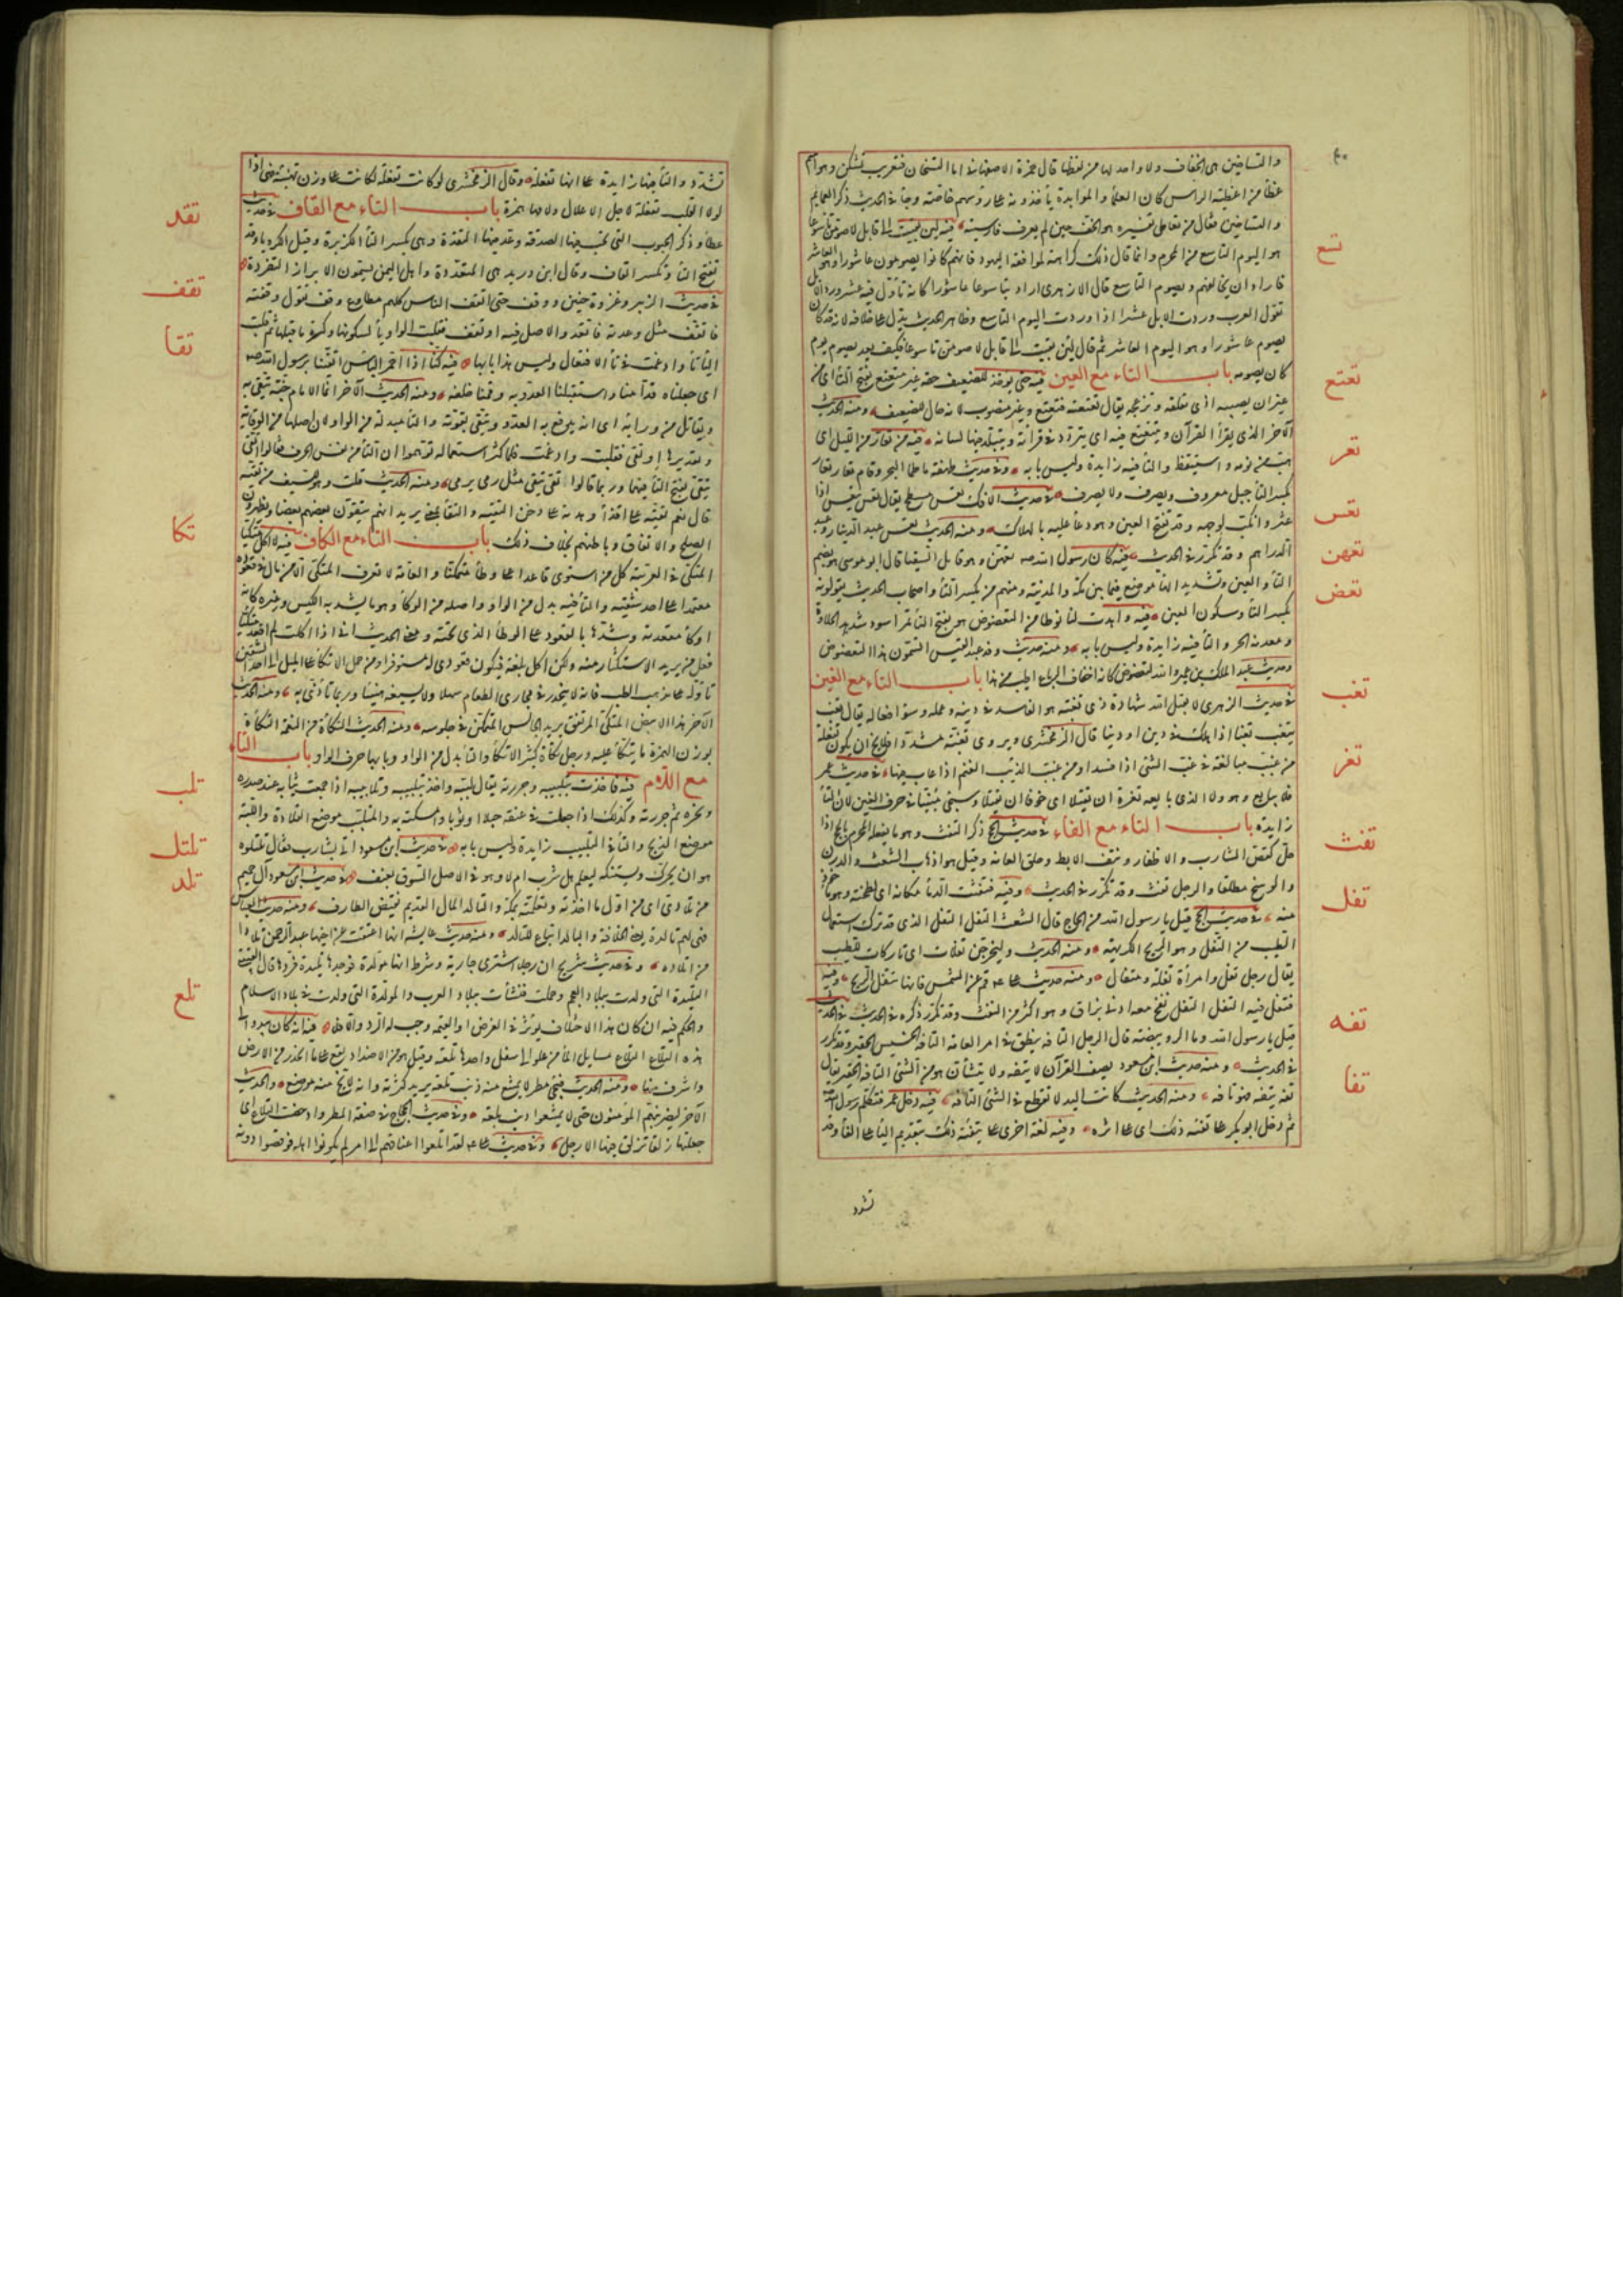 والتساخين هى الخفاف ولا واحد لها من لفظها قال حمزة الاصفهانى اما التسخان فتعريب تشكن وهو اسم
غطاء من اغطية الراس كان العلماء والموابذة ياخذونه على رؤسهم خاصة وجاء فى الحديث ذكر العمايم
والتساخين فقال من تعاطى تفسيره هو الخف حين لم يعرف فارسيته فيه لئن بقيت الى قابل لاصومن تاسوعا
تسع
هو اليوم التاسع من المحرم وانما قال ذلك كراهة لموافقة اليهود فانهم كانوا يصومون عاشورا وهو العاشر
فاراد ان يخالفهم ويصوم التاسع قال الازهرى اراد بتاسوعا عاشورا كانه تاول فيه عشر ورد الابل
تقول العرب وردت الابل عشرا اذا وردت اليوم التاسع وظاهر الحديث يدل على خلافه لانه قد كان
يصوم عاشورا وهو اليوم العاشر ثم قال لئن بقيت الى قابل لاصومن تاسوعا فكيف يعد بصوم يوم
كان يصومه باب التاء مع العين فيه حتى يوخذ للضعيف حقه غير متعتع بفتح التاء اى من
تعتع
غير ان يصيبه اذى يقلقه ويزعجه يقال تعتعه فتتعتع وغير منصوب لانه حال للضعيف ومنه الحديث
الآخر الذى يقرأ القرآن ويتتعتع فيه اى يتردد فى قراته ويتبلد فيها لسانه فيه من تعار من الليل اى
تعر
هب من نومه واستيقظ والتاء فيه زايدة وليس بابه وفى حديث طهفة ما طما البحر وقام تعار تعار
بكسر التاء جبل معروف ويصرف ولا يصرف فى حديث الافك تعس مسطح يقال تعس يتعس اذا
تعس
عثر وانكب لوجهه وقد تفتح العين وهو دعاء عليه بالهلاك ومنه الحديث تعس عبد الدينار وعبد
الدراهم وقد تكرر فى الحديث فيه كان رسول الله صه بتعهن وهو قايل السقيا قال ابو موسى هو بضم
تعهن
التاء والعين وتشديد الهاء موضع فيما بين مكة والمدينة ومنهم من يكسر التاء واصحاب الحديث يقولونه
تعض
بكسر التاء وسكون العين فيه واهدت لنا نوطا من التعضوض هو بفتح التاء تمر اسود شديد الحلاوة
ومعدنه هجر والتاء فيه زايدة وليس بابه ومنه حديث وفد عبد القيس اتسمون هذا التعضوض
وحديث عبد الملك بن عمير والله لتعضوض كانه اخفاف الرباع اطيب من هذا باب التاء مع الغين
تغب
فى حديث الزهرى لا يقبل الله شهادة ذى تغبة هو الفاسد فى دينه وعمله وسوء افعاله يقال تغب
يتغب تغبا اذا هلك فى دين او دنيا قال الزمخشرى ويروى تغبة مشددا ولا يخلو ان يكون تفعلة
من غبب مبالغة فى غب الشئ اذا فسد او من غبب الذئب الغنم اذا عاث فيها فى حديث عمر
تغر
فلا يبايع هو ولا الذى بايعه تغرة ان يقتلا اى خوفا ان يقتلا وسيجئ مبينا فى حرف الغين لان التاء
زايدة باب التاء مع الفاء فى حديث الحج ذكر التفث وهو ما يفعله المحرم بالحج اذا
تفث
حل كقص الشارب والاظفار ونتف الابط وحلق العانة وقيل هو اذهاب الشعث والدرن
والوسخ مطلقا والرجل تفث وقد تكرر فى الحديث وفيه فتفثت الدماء مكانه اى لطخته وهو ماخوذ
منه فى حديث الحج قيل يا رسول الله من الحاج قال الشعث التفل التفل الذى قد ترك استعمال
تفل
الطيب من التفل وهو الريح الكريهة ومنه الحديث وليخرجن تفلات اى تاركات للطيب
يقال رجل تفل وامراة تفلة ومتفال ومنه حديث على قم عن الشمس فانها تتفل الريح وفيه
فتفل فيه التفل التفل نفخ معه ادنى بزاق وهو اكثر من النفث وقد تكرر ذكره فى الحديث فى الحديث
تفه
قيل يا رسول الله وما الرويبضة قال الرجل التافه ينطق فى امر العامة التافه الخسيس الحقير وقد تكرر
فى الحديث ومنه حديث ابن مسعود يصف القرآن لا يتفه ولا يتشان هو من الشئ التافه الحقير يقال
تفه يتفه فهو تافه ومنه الحديث كانت اليد لا تقطع فى الشئ التافه فيه دخل عمر فتكلم رسول الله
تفا
ثم دخل ابو بكر على تفئة ذلك اى على اثره وفيه لغة اخرى على تيفئة ذلك بتقديم الياء على الفاء وقد
تشدد
تشدد والتاء فيها زايدة على انها تفعلة وقال الزمخشرى لو كانت تفعلة لكانت على وزن تهنئة فهى اذا
لولا القلب تفعلة لاجل الاعلال ولامها همزة باب التاء مع القاف فى حديث
تقد
عطاء وذكر الحبوب التى تجب فيها الصدقة وعد فيها التقدة وهى بكسر التاء الكزبرة وقيل الكرويا وقد
تفتح التاء وتكسر القاف وقال ابن دريد هى التقردة واهل اليمن يسمون الابزار التقردة
تقف
فى حديث الزبير وغزوة حنين ووقف حتى اتقف الناس كلهم مطاوع وقف تقول وقفته
فاتقف مثل وعدته فاتعد والاصل فيه اوتقف فقلبت الواو ياء لسكونها وكسرة ما قبلها ثم قلبت
تقا
الياء تاء وادغمت فى تاء الافتعال وليس هذا بابها فيه كنا اذا احمر الباس اتقينا برسول الله صه
اى جعلناه قدامنا واستقبلنا العدو به وقمنا خلفه ومنه الحديث الآخر انما الامام جنة يتقى به
ويقاتل من ورايه اى انه يدفع به العدو ويتقى بقوته والتاء مبدلة من الواو لان اصلها من الوقاية
وتقديرها اوتقى فقلبت وادغمت فلما كثر استعماله توهموا ان التاء من نفس الحرف فقالوا اتقى
يتقى بفتح التاء فيهما وربما قالوا تقى يتقى مثل رمى يرمى ومنه الحديث قلت وهل للسيف من تقية
قال نعم تقية على اقذاء وهدنة على دخن التقية والتقاة بمعنى يريد انهم يتقون بعضهم بعضا ويظهرون
الصلح والاتفاق وباطنهم بخلاف ذلك باب التاء مع الكاف فيه لا آكل متكيا
تكا
المتكئ فى العربية كل من استوى قاعدا على وطاء متمكنا والعامة لا تعرف المتكئ الا من مال فى قعوده
معتمدا على احد شقيه والتاء فيه بدل من الواو واصله من الوكاء وهو ما يشد به الكيس وغيره كانه
اوكأ مقعدته وشدها بالقعود على الوطاء الذى تحته ومعنى الحديث انى اذا اكلت لم اقعد متكيا
فعل من يريد الاستكثار منه ولكن آكل بلغة فيكون قعودى له مستوفزا ومن حمل الاتكاء على الميل الى احد الشقين
تاوله على مذهب الطب فانه لا ينحدر فى مجارى الطعام سهلا ولا يسيغه هنيئا وربما تاذى به ومنه الحديث
الآخر هذا الابيض المتكئ المرتفق يريد الجالس المتمكن فى جلوسه ومنه الحديث التكاة من النعمة التكاة
بوزن الهمزة ما يتكأ عليه ورجل تكاة كثير الاتكاء والتاء بدل من الواو وبابها حرف الواو باب التاء
مع اللام فيه فاخذت بتلبيبه وجررته يقال لببه واخذ بتلبيبه وتلابيبه اذا جمعت ثيابه عند صدره
تلب
ونحره ثم جررته وكذلك اذا جعلت فى عنقه حبلا او ثوبا وامسكته به والمتلبب موضع القلادة واللبة
موضع الذبح والتاء فى التلبيب زايدة وليس بابه فى حديث ابن مسعود اتى بشارب فقال تلتلوه
تلتل
هو ان يحرك ويستنكه ليعلم هل شرب ام لا وهو فى الاصل السوق بعنف فى حديث ابن مسعود آل حم
تلد
من تلادى اى من اول ما اخذته وتعلمته بمكة والتالد المال القديم نقيض الطارف ومنه حديث العباس
فهى لهم تالدة بالدة يعنى الخلافة والبالد اتباع للتالد ومنه حديث عايشة انها اعتقت عن اخيها عبد الرحمن تلادا
من تلاده وفى حديث شريح ان رجلا اشترى جارية وشرط انها مولدة فوجدها تليدة فردها قال القتيبى
التليدة التى ولدت ببلاد العجم وحملت فنشأت ببلاد العرب والمولدة التى ولدت فى بلاد الاسلام
تلع
والحكم فيه ان كان هذا الاختلاف يؤثر فى الغرض او القيمة وجب له الرد والا فلا فيه انه كان يبدو الى
هذه التلاع التلاع مسايل الماء من علو الى سفل واحدها تلعة وقيل هو من الاضداد يقع على ما انحدر من الارض
واشرف منها ومنه الحديث فيجئ مطر لا يمنع منه ذنب تلعة يريد كثرته وانه لا يخلو منه موضع والحديث
الآخر ليضربنهم المؤمنون حتى لا يمنعوا ذنب تلعة وفى حديث الحجاج فى صفة المطر وادحضت التلاع اى
جعلتها زلقا تزلق فيها الارجل وفى حديث على لقد اتلعوا اعناقهم الى امر لم يكونوا اهله فوقصوا دونه